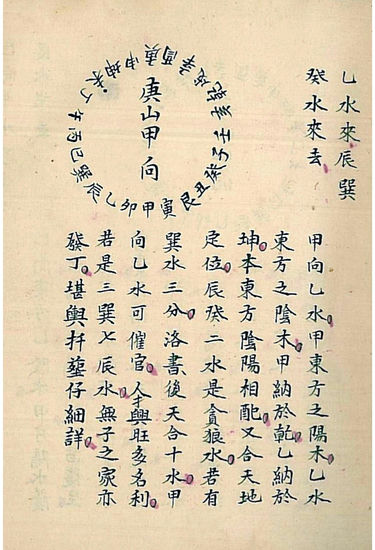 乙水來辰巽
癸水來去
庚山甲向
丁未坤申庚酉辛戌乾亥壬子癸丑艮寅甲卯乙辰巽巳丙午
甲向乙水。甲東方之陽木。乙水
東方之陰木。甲納於乾。乙納於
坤。本東方陰陽相配。又合天地
定位。辰癸二水是貪狼水。若有
巽水三分。洛書後天合十水。甲
向乙水可催官。興旺多名利。
若是三巽七辰水。無子之家亦
發丁。堪輿扦葬仔細詳。